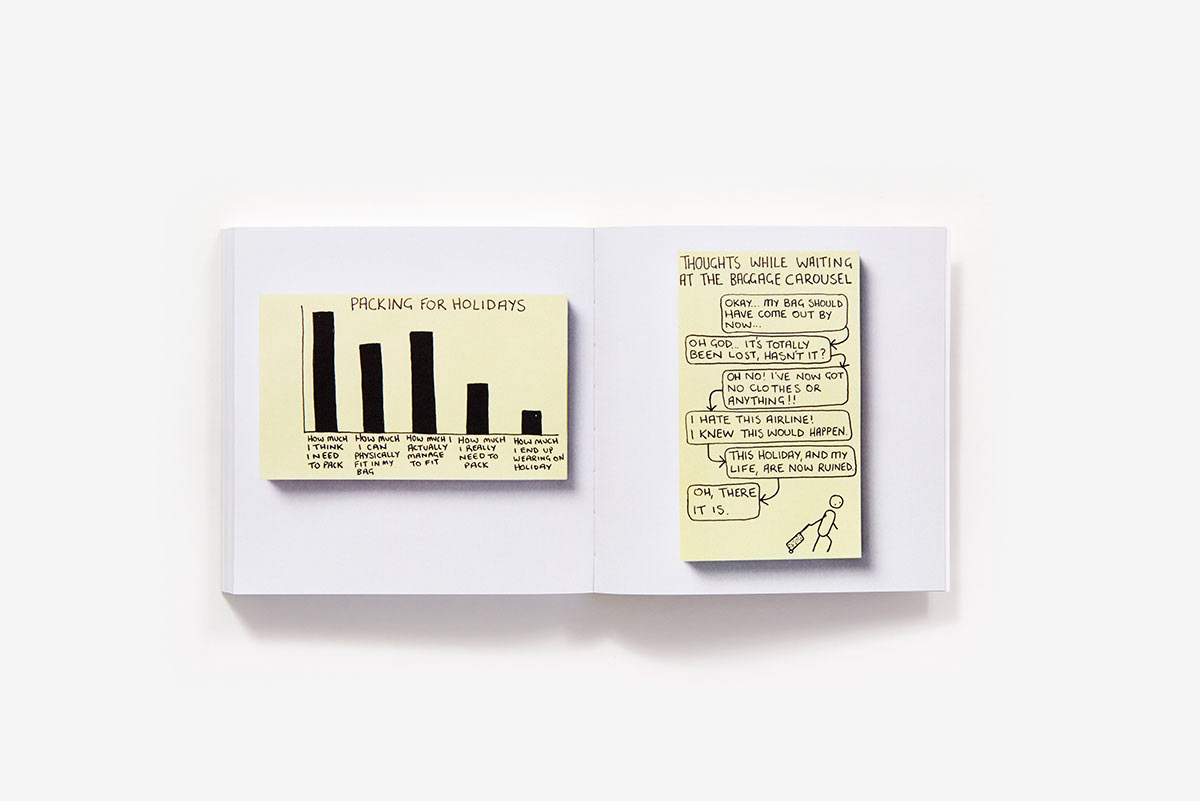 PACKING FOR HOLIDAYS
HOW MUCH
I THINK
I NEED
TO PACK
HOW MUCH
I CAN
PHYSICALLY
FIT IN MY
BAG
HOW MUCH I
ACTUALLY
MANAGE
TO FIT
HOW MUCH
I REALLY
NEED TO
PACK
HOW MUCH
I END UP
WEARING ON
HOLIDAY
THOUGHTS WHILE WAITING
AT THE BAGGAGE CAROUSEL
OKAY... MY BAG SHOULD
HAVE COME OUT BY
NOW...
OH GOD... IT'S TOTALLY
BEEN LOST, HASN'T IT?
OH NO! I'VE NOW GOT
NO CLOTHES OR
ANYTHING!!
I HATE THIS AIRLINE!
I KNEW THIS WOULD HAPPEN.
THIS HOLIDAY, AND MY
LIFE, ARE NOW RUINED.
OH, THERE
IT IS.